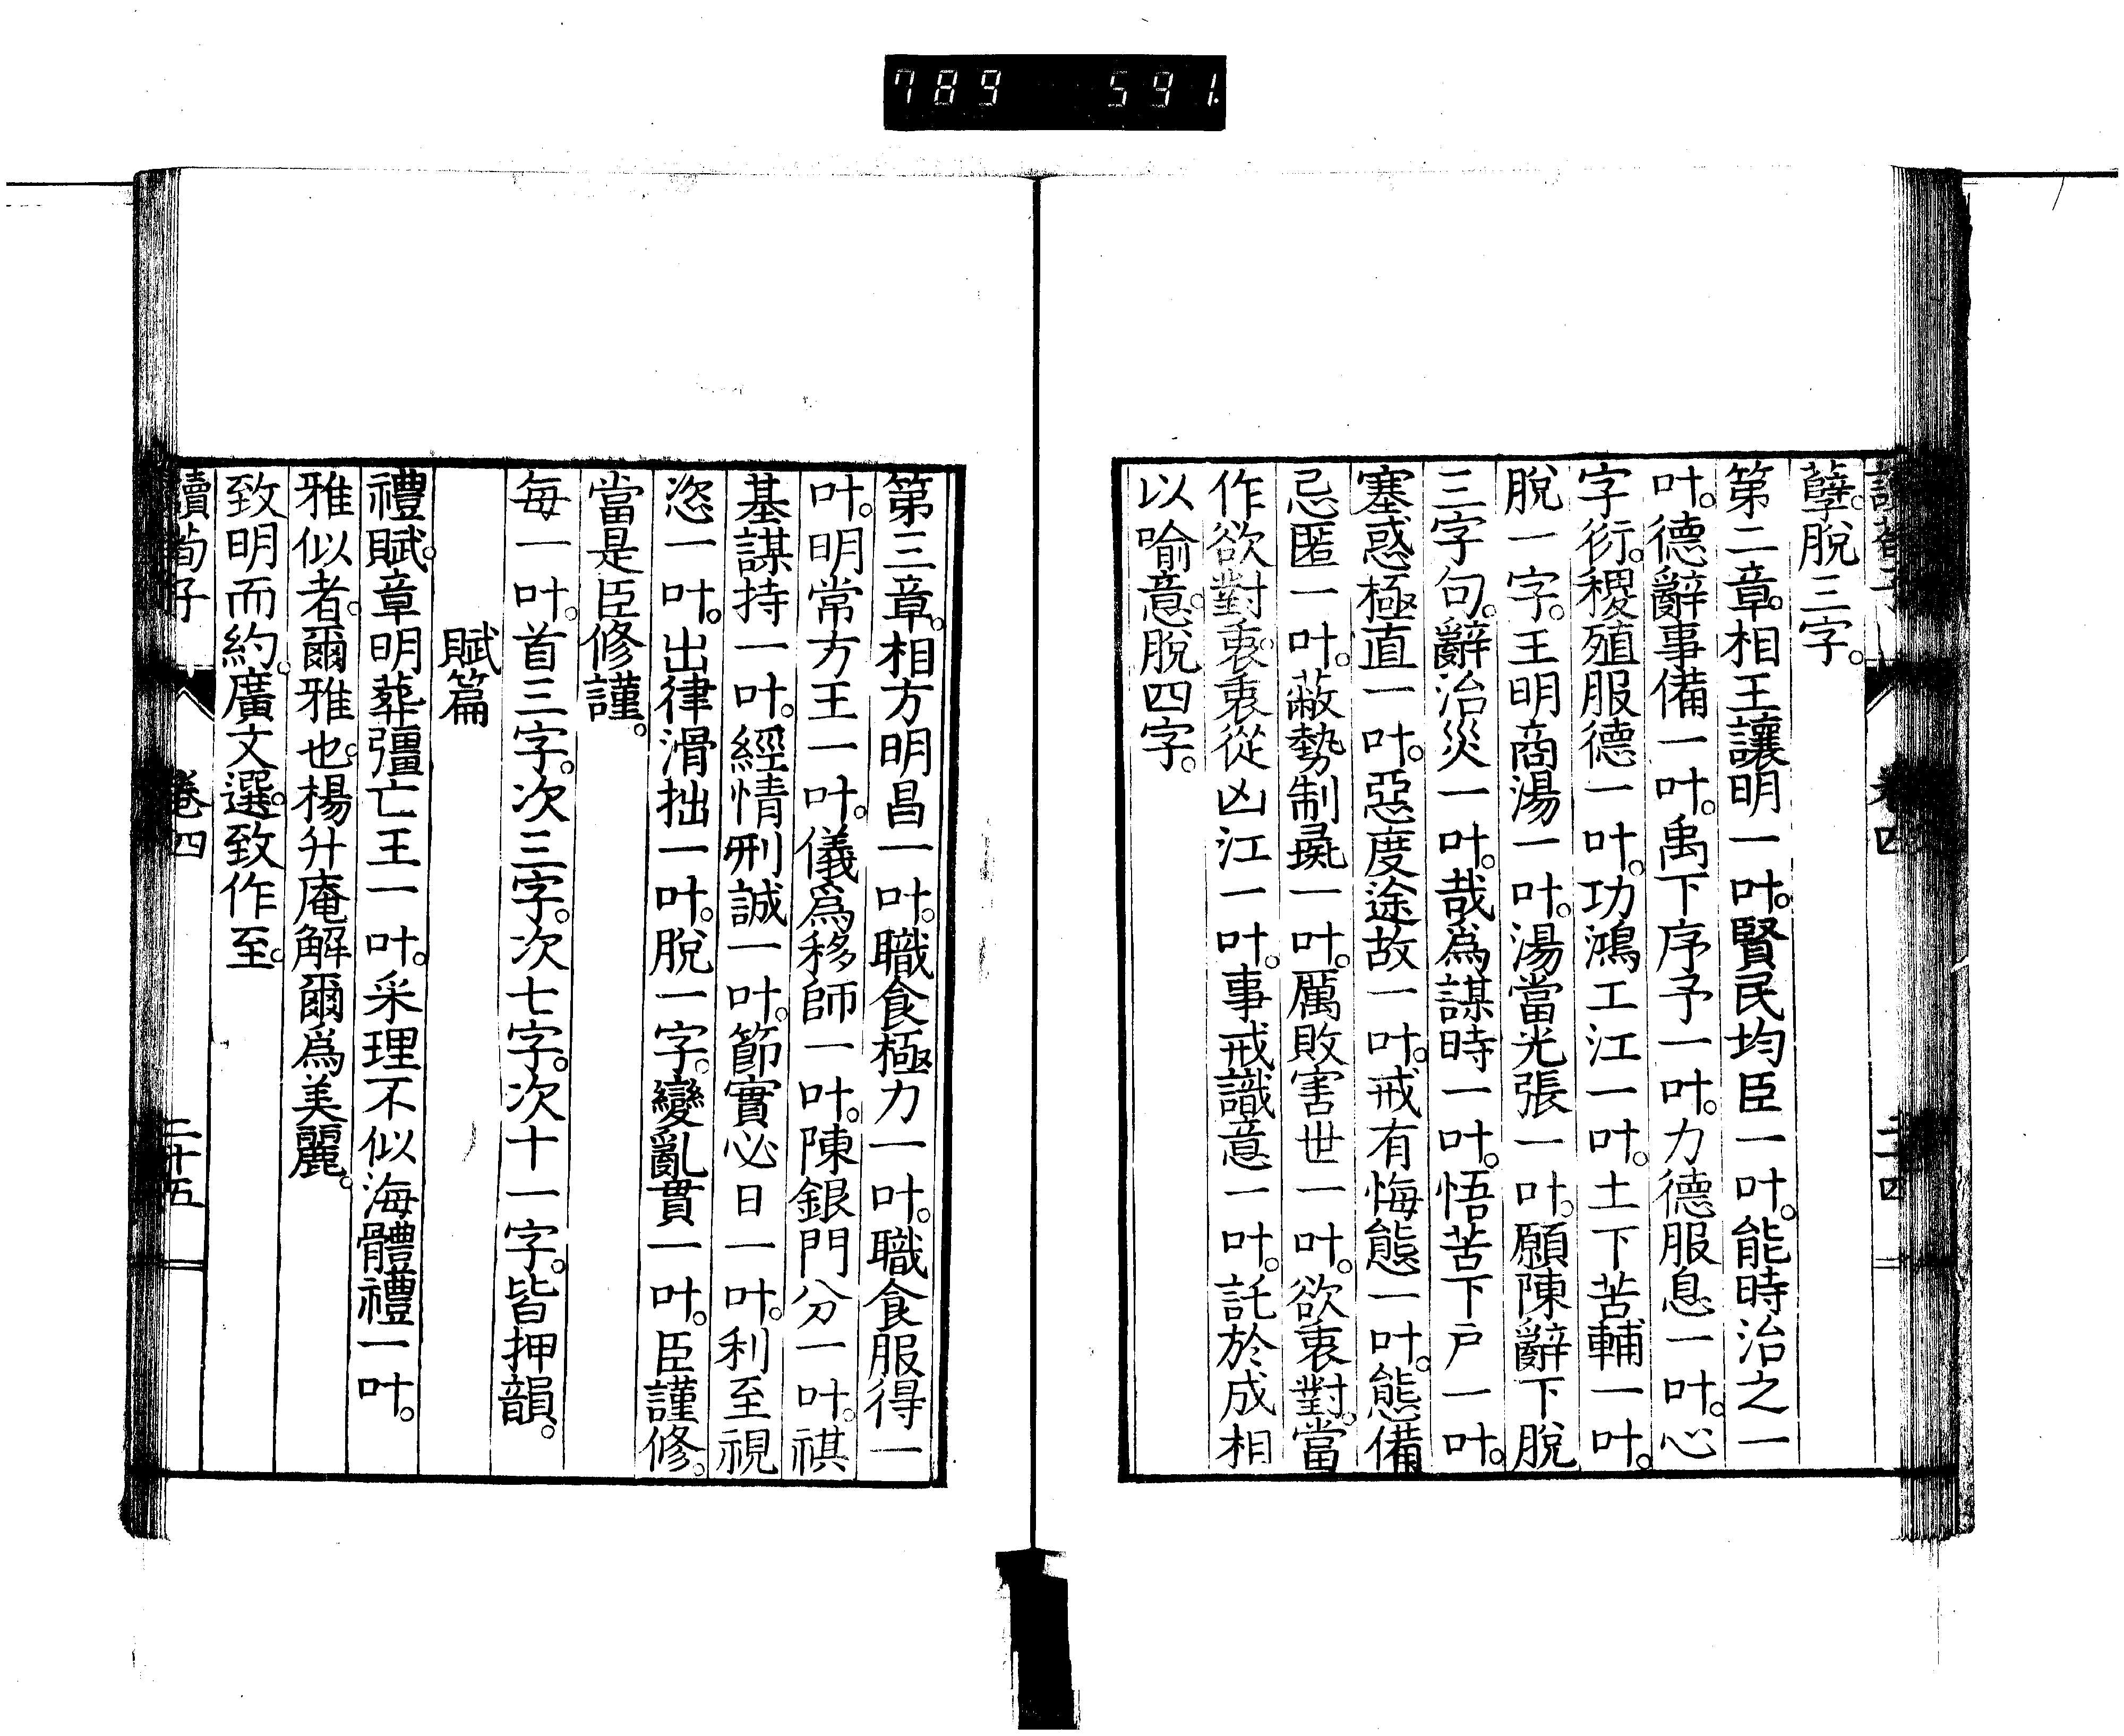 789 591.
讀荀子 卷四 二十四
孽。脫三字。
第二章。相王讓明一叶。賢民均臣一叶。能時治之一
叶。德辭事備一叶。禹下序予一叶。力德服息一叶。心
字衍。稷殖服德一叶。功鴻工江一叶。土下苦輔一叶。
脫一字。王明商湯一叶。湯當光張一叶。願陳辭下脫
三字句。辭治災一叶。哉爲謀時一叶。悟苦下戶一叶。
塞惑極直一叶。惡度途故一叶。戒有悔態一叶。態備
忌匿一叶。蔽勢制一叶。厲敗害世一叶。欲衷對。當
作欲對。衷。衷從凶江一叶。事戒識意一叶。託於成相
以喻意。脫四字。
第三章。相方明昌一叶。職食極力一叶。職食服得一
叶。明常方王一叶。儀爲移師一叶。陳銀門分一叶。祺
基謀持一叶。經情刑誠一叶。節實必日一叶。利至視
恣一叶。出律滑拙一叶。脫一字。變亂貫一叶。臣謹修。
當是臣修謹。
每一叶。首三字。次三字。次七字。次十一字。皆押韻。
賦篇
禮賦。章明葬彊亡王一叶。采理不似海體禮一叶。
雅似者。爾雅也。楊升庵解爾爲美麗。
致明而約。廣文選。致作至。
讀荀子 卷四 二十五